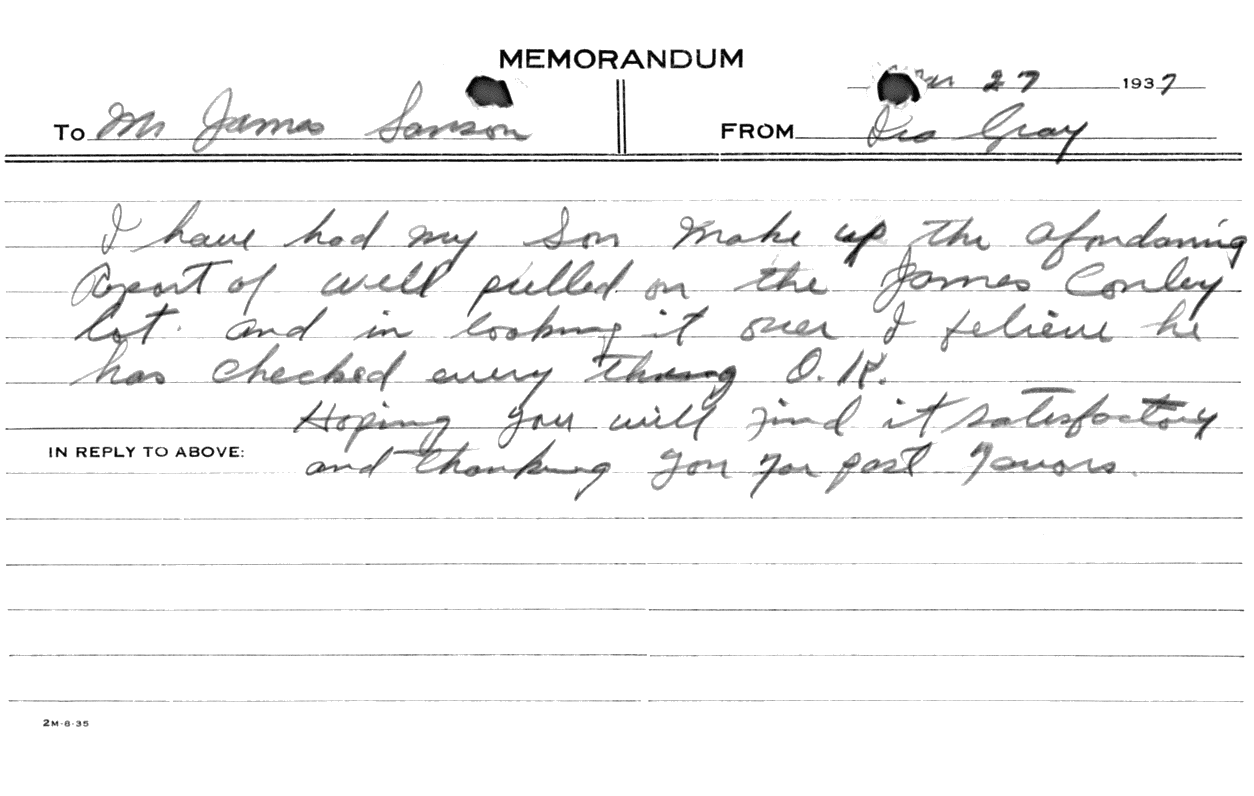 MEMORANDUM
27 1937
To Mr James Sanson
FROM Ira Gray
I have had my Son make up the
Report of well pulled on the James Conley
lot. and in looking it over I believe he
has checked every thing O.K.
Hoping you will find it satesfactory
IN REPLY TO ABOVE:
and thanking you for past favors.
2M-8-35